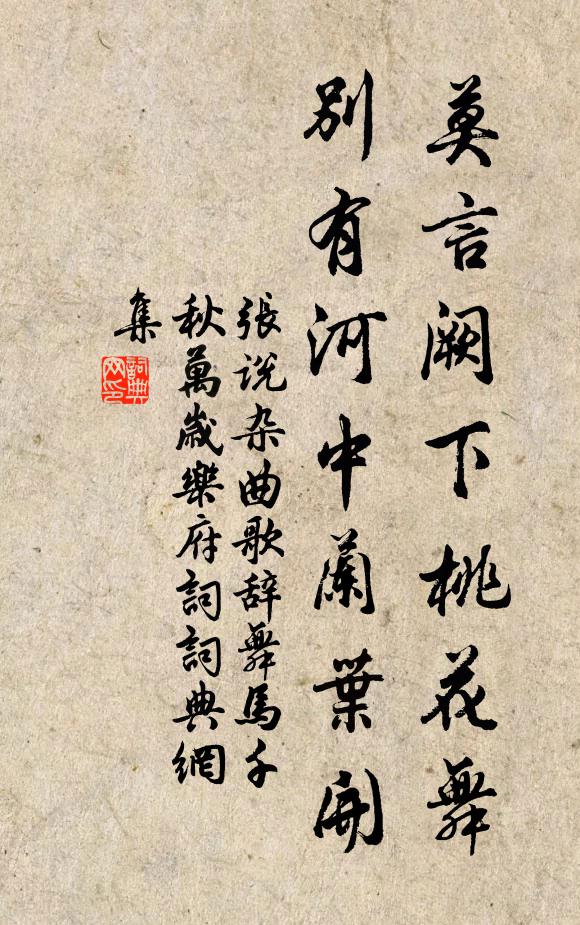 莫言阙下桃花舞
别有河中蘭葉開
張说杂曲歌辞舞馬千
秋萬歲樂府詞詞典網
集
詞典
网印